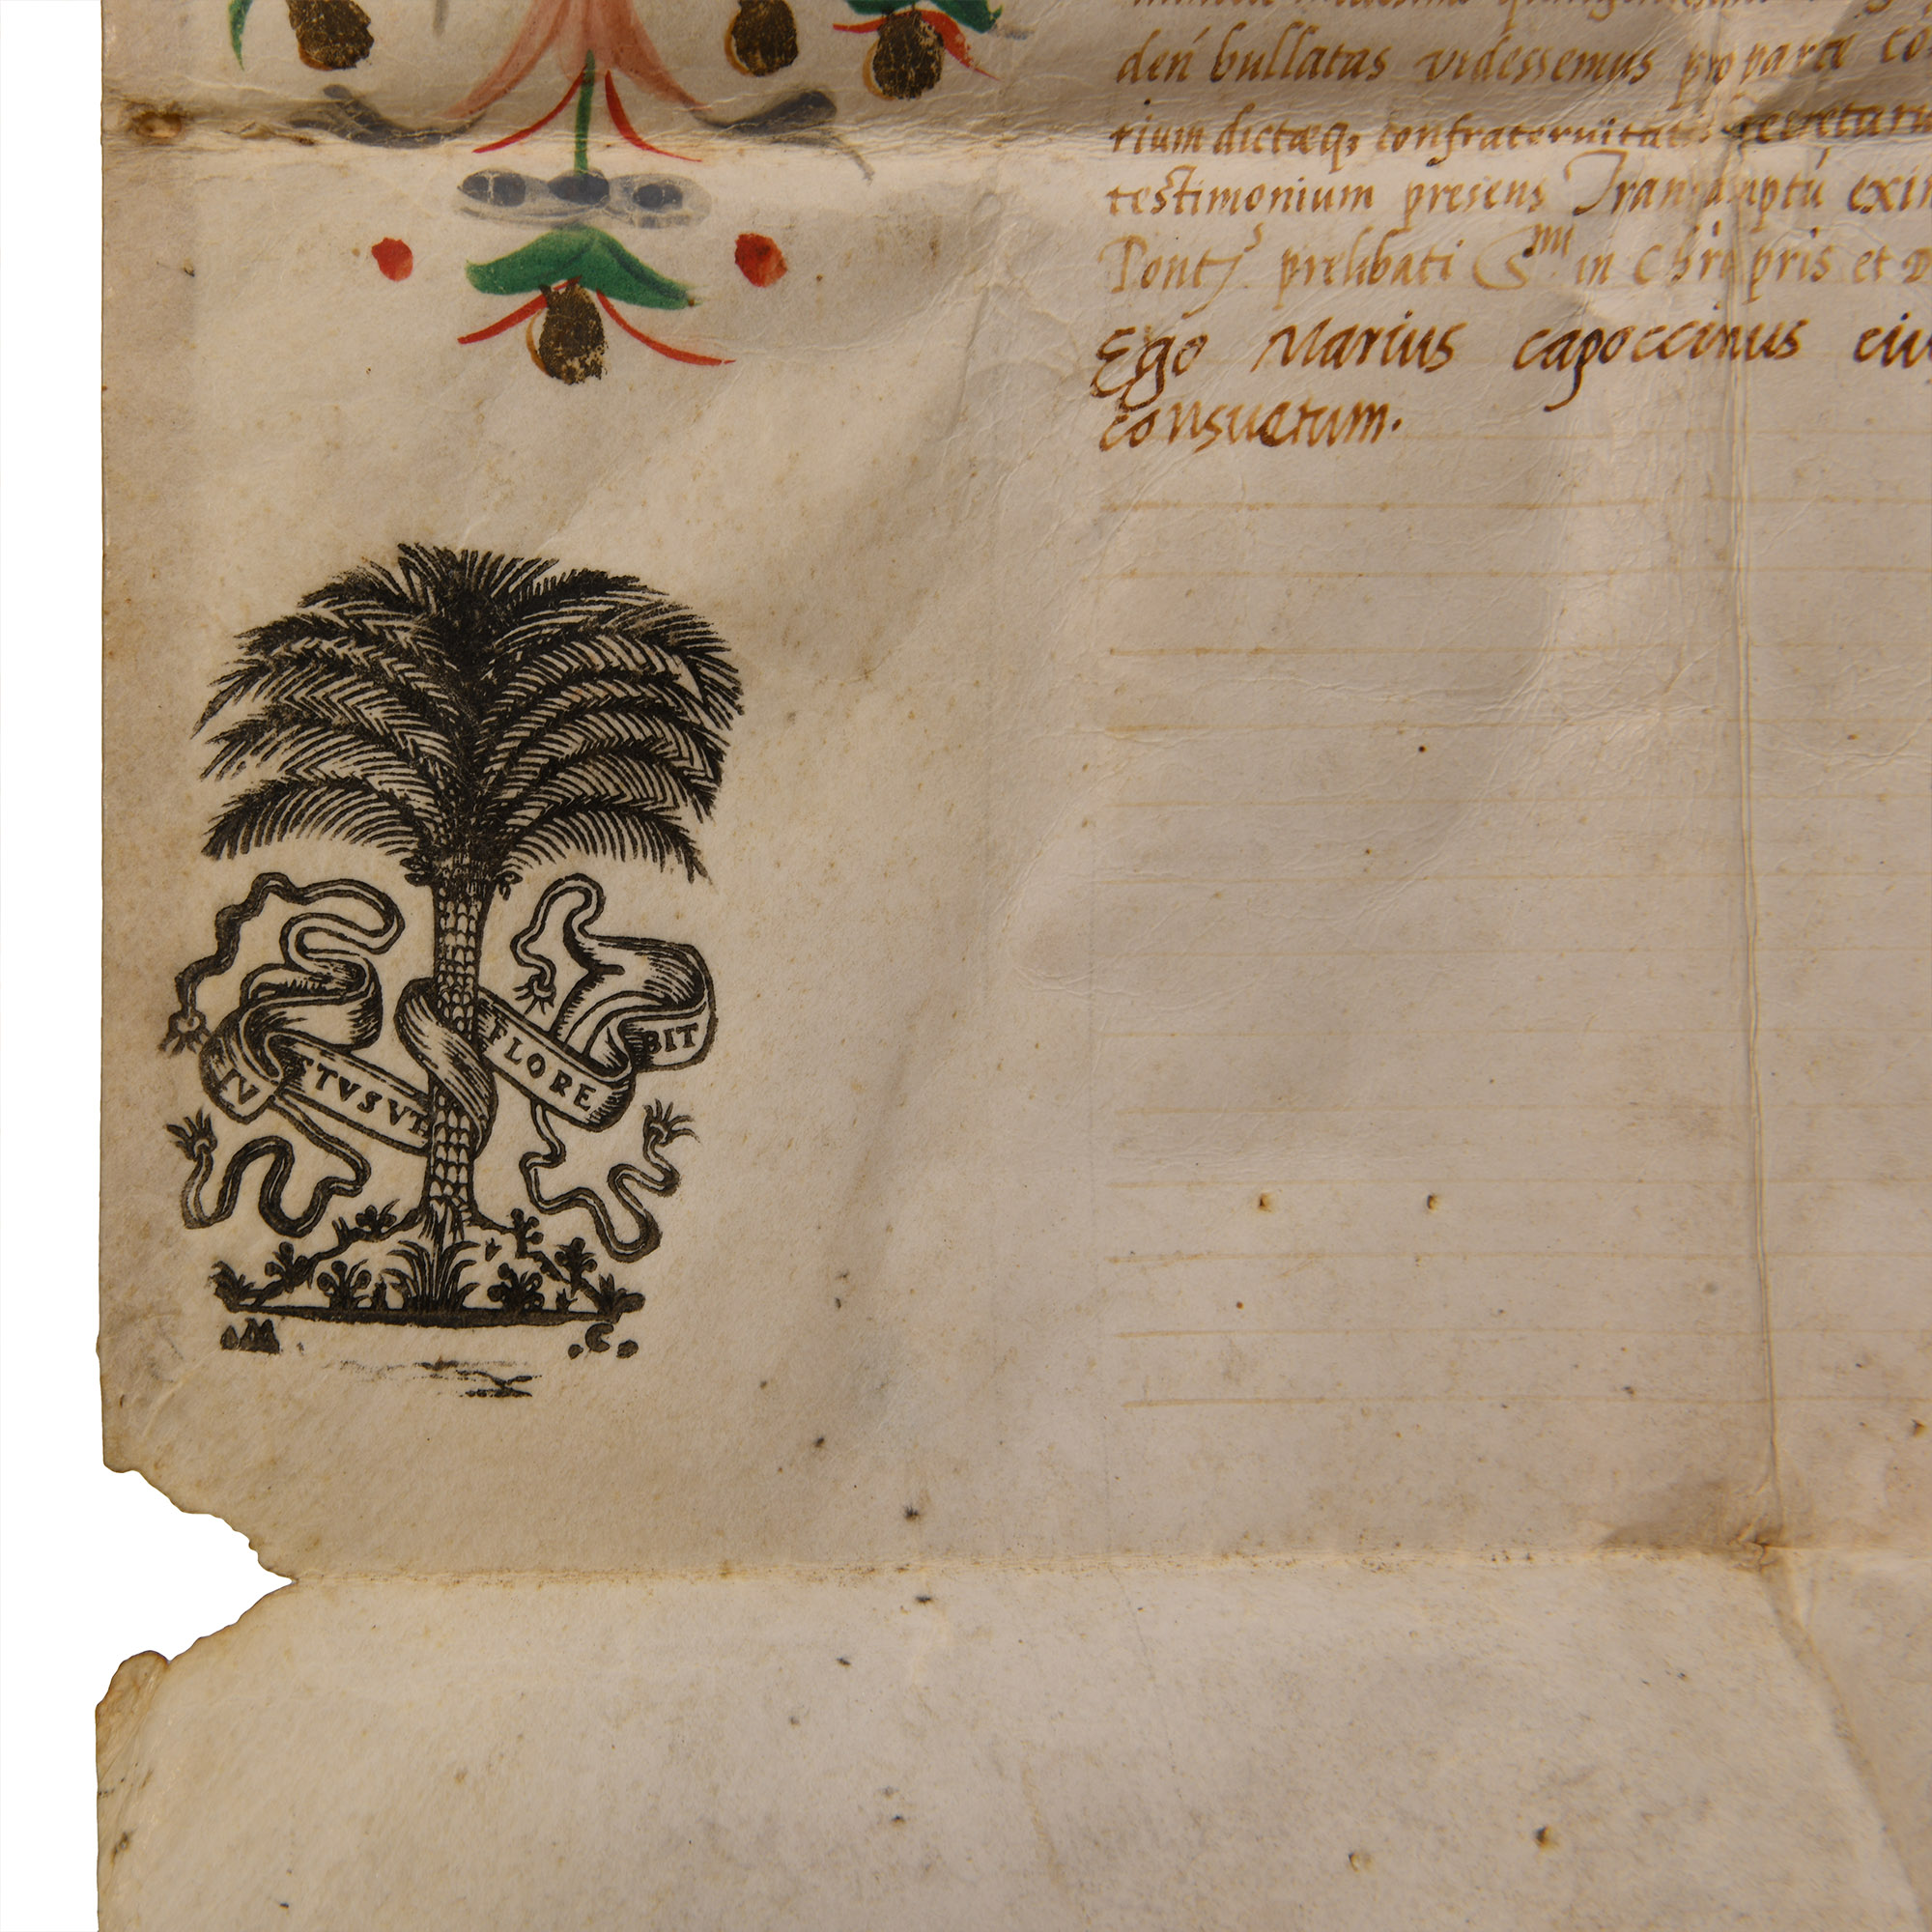 den̄ bullatas videssemus pro parte co
rium dictæq; confraternitatis secretari
testimonium presens Transumptū exi
Pont. prelibati S.mi in Chri pris et D
Ego Marius capoccinus eiu
consuetum.
IV STVS VT FLORE BIT
M C